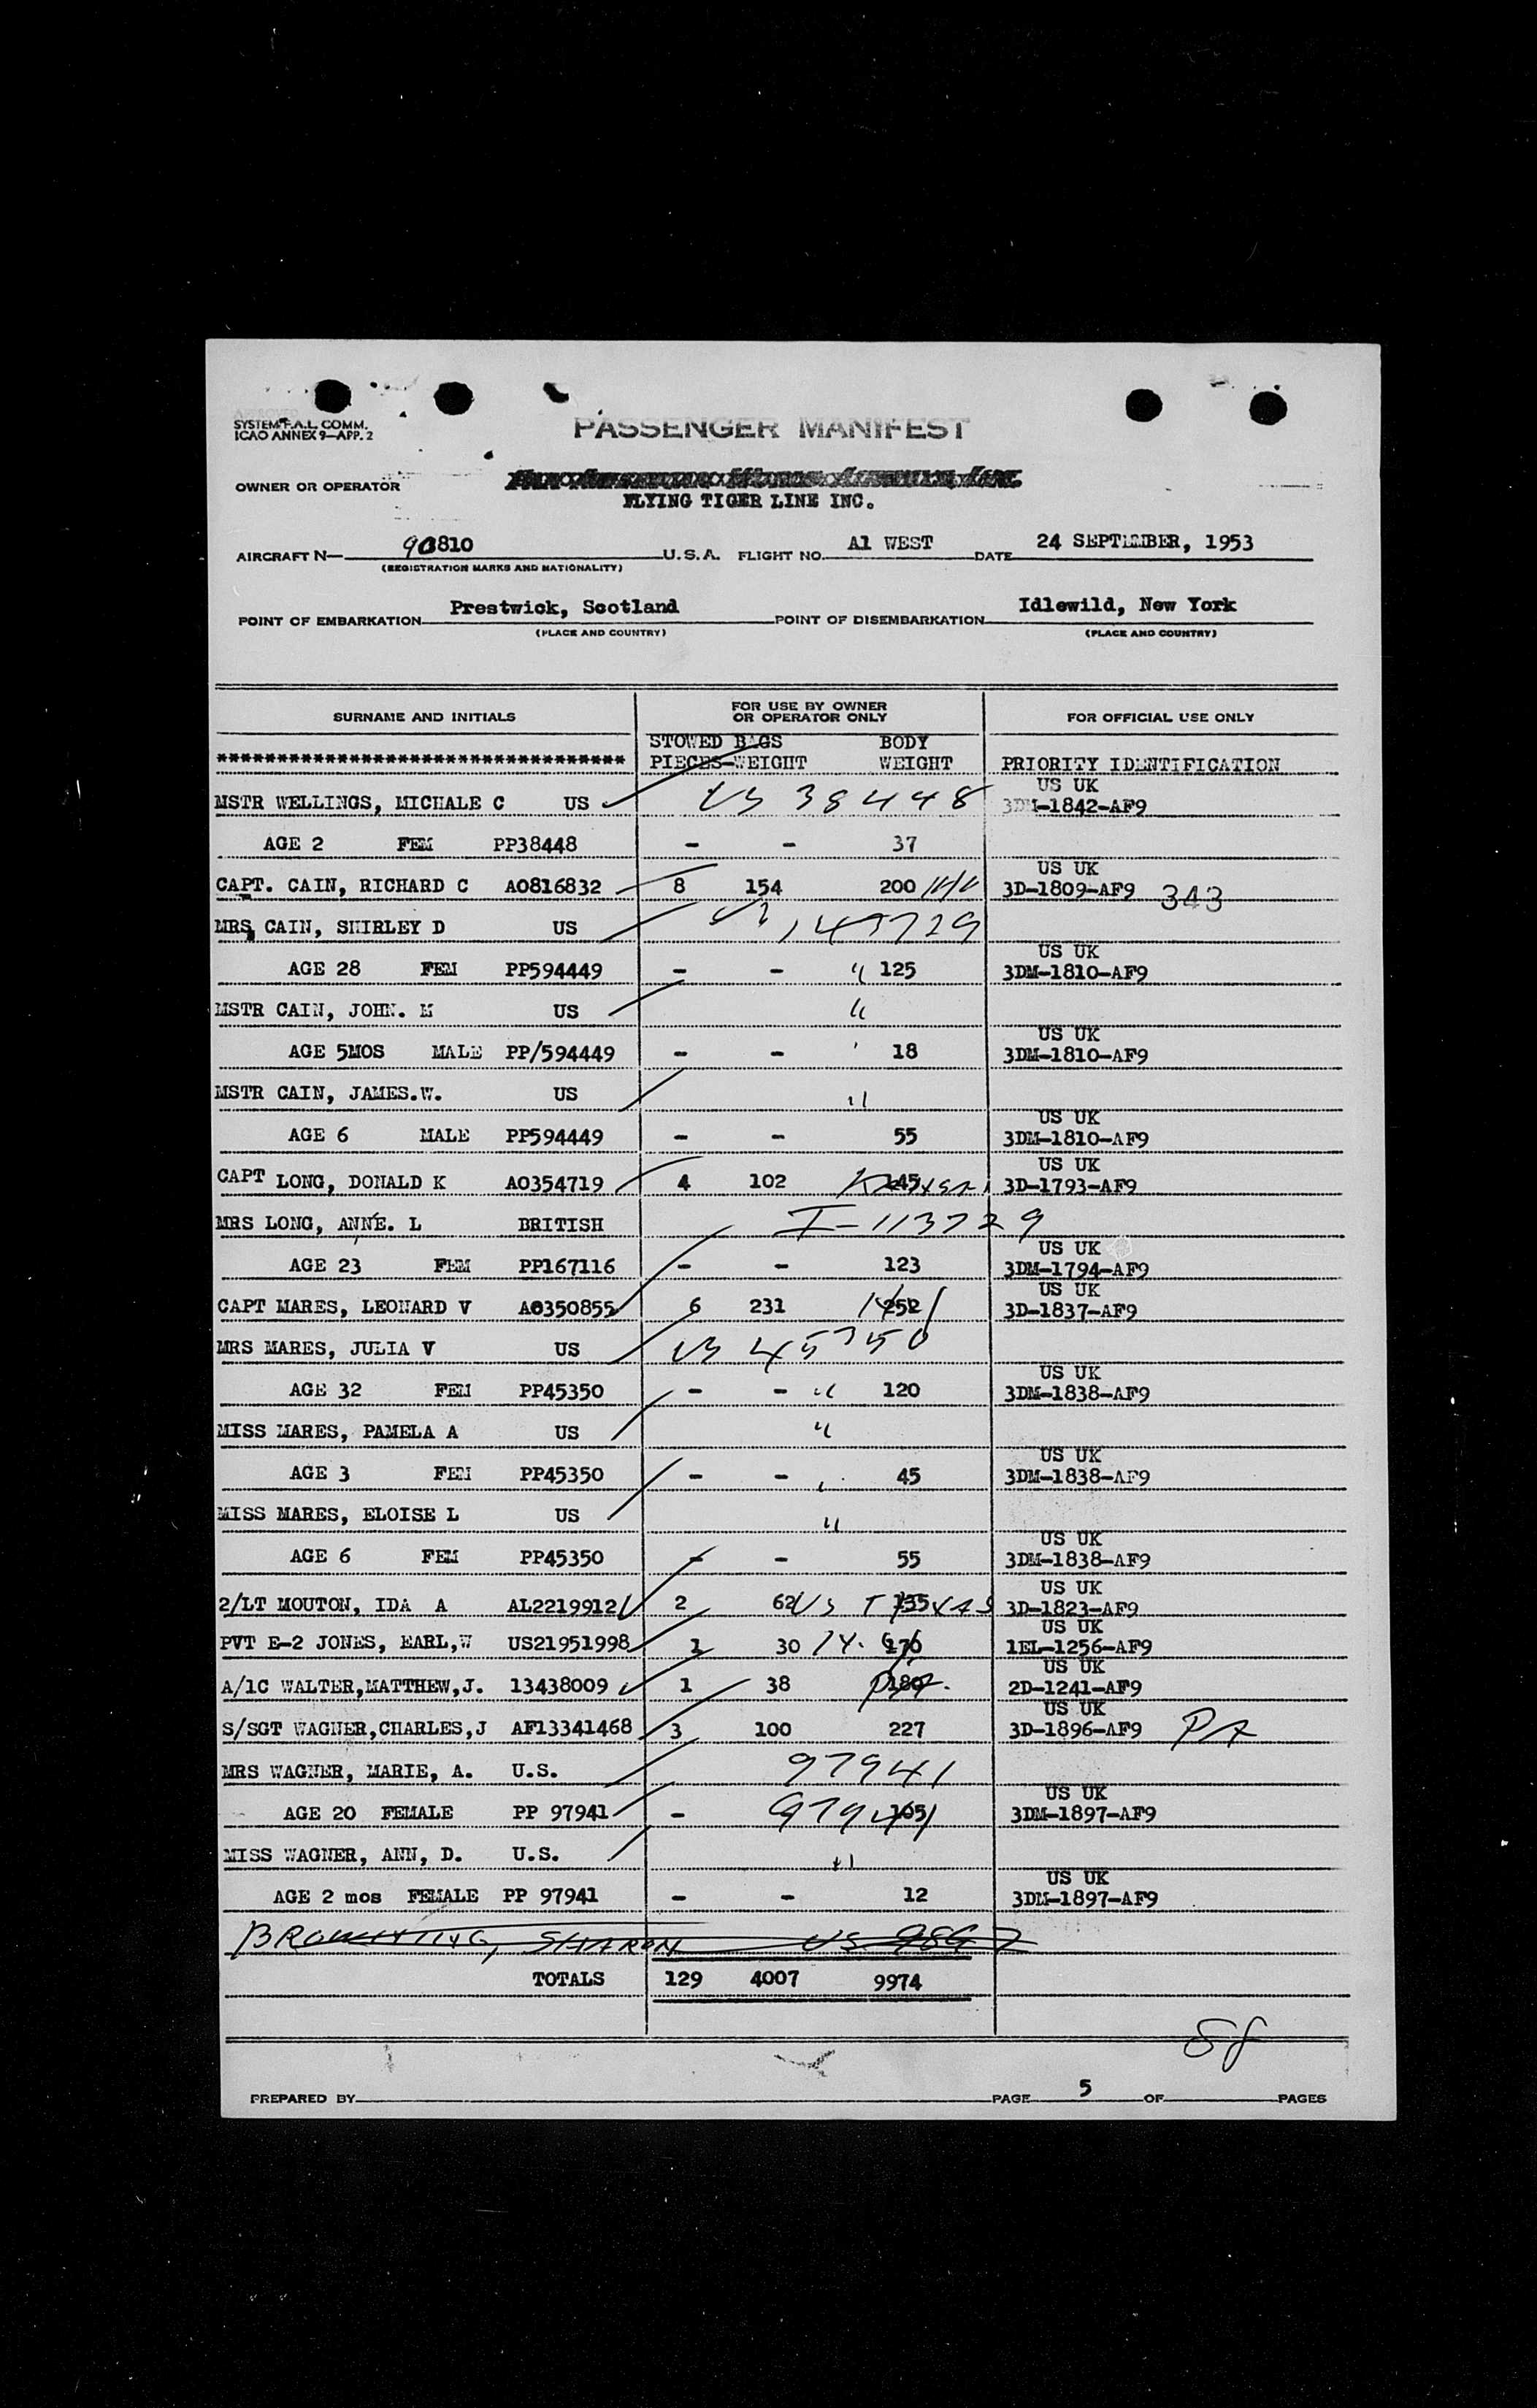 SYSTEM F.A.L. COMM.
ICAO ANNEX 9—APP. 2
PASSENGER MANIFEST
OWNER OR OPERATOR
FLYING TIGER LINE INC.
AIRCRAFT N— 90810 U.S.A. FLIGHT NO. A1 WEST DATE 24 SEPTEMBER, 1953
(REGISTRATION MARKS AND NATIONALITY)
POINT OF EMBARKATION Prestwick, Scotland POINT OF DISEMBARKATION Idlewild, New York
(PLACE AND COUNTRY) (PLACE AND COUNTRY)
SURNAME AND INITIALS FOR USE BY OWNER OR OPERATOR ONLY FOR OFFICIAL USE ONLY
STOWED BAGS BODY
********************************** PIECES-WEIGHT WEIGHT PRIORITY IDENTIFICATION
US UK
MSTR WELLINGS, MICHALE C US US 38448 3DM-1842-AF9
AGE 2 FEM PP38448 - - 37
US UK
CAPT. CAIN, RICHARD C AO816832 8 154 200 3D-1809-AF9 343
MRS, CAIN, SHIRLEY D US 143729
US UK
AGE 28 FEM PP594449 - - " 125 3DM-1810-AF9
MSTR CAIN, JOHN. M US "
US UK
AGE 5MOS MALE PP/594449 - - 18 3DM-1810-AF9
MSTR CAIN, JAMES.W. US "
US UK
AGE 6 MALE PP594449 - - 55 3DM-1810-AF9
US UK
CAPT LONG, DONALD K AO354719 4 102 145 3D-1793-AF9
MRS LONG, ANNE. L BRITISH I-113729
US UK
AGE 23 FEM PP167116 - - 123 3DM-1794-AF9
US UK
CAPT MARES, LEONARD V AO350855 6 231 252 3D-1837-AF9
MRS MARES, JULIA V US US 45350
US UK
AGE 32 FEM PP45350 - - " 120 3DM-1838-AF9
MISS MARES, PAMELA A US "
US UK
AGE 3 FEM PP45350 - - 45 3DM-1838-AF9
MISS MARES, ELOISE L US "
US UK
AGE 6 FEM PP45350 - - 55 3DM-1838-AF9
US UK
2/LT MOUTON, IDA A AL2219912 2 62 US TEXAS 135 3D-1823-AF9
US UK
PVT E-2 JONES, EARL,W US21951998 1 30 170 1EL-1256-AF9
US UK
A/1C WALTER,MATTHEW,J. 13438009 1 38 180 PA. 2D-1241-AF9
US UK
S/SGT WAGNER,CHARLES,J AF13341468 3 100 227 3D-1896-AF9 PA
MRS WAGNER, MARIE, A. U.S. 97941
US UK
AGE 20 FEMALE PP 97941 - 97941 105 3DM-1897-AF9
MISS WAGNER, ANN, D. U.S. "
US UK
AGE 2 mos FEMALE PP 97941 - - 12 3DM-1897-AF9
BROWNING, SHARON US
TOTALS 129 4007 9974
PREPARED BY PAGE 5 OF PAGES